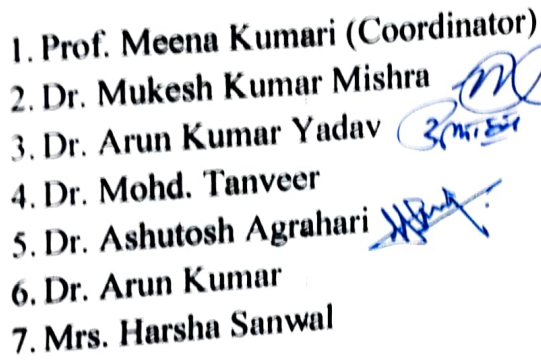 1. Prof. Meena Kumari (Coordinator)
2. Dr. Mukesh Kumar Mishra
3. Dr. Arun Kumar Yadav
4. Dr. Mohd. Tanveer
5. Dr. Ashutosh Agrahari
6. Dr. Arun Kumar
7. Mrs. Harsha Sanwal